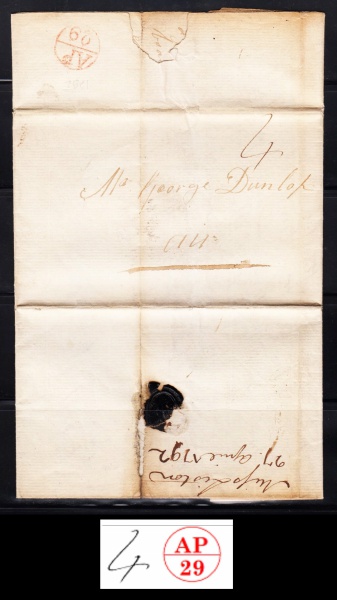 AP
29
4
Mr George Dunlop
Air
27. April 1792
4
AP
29